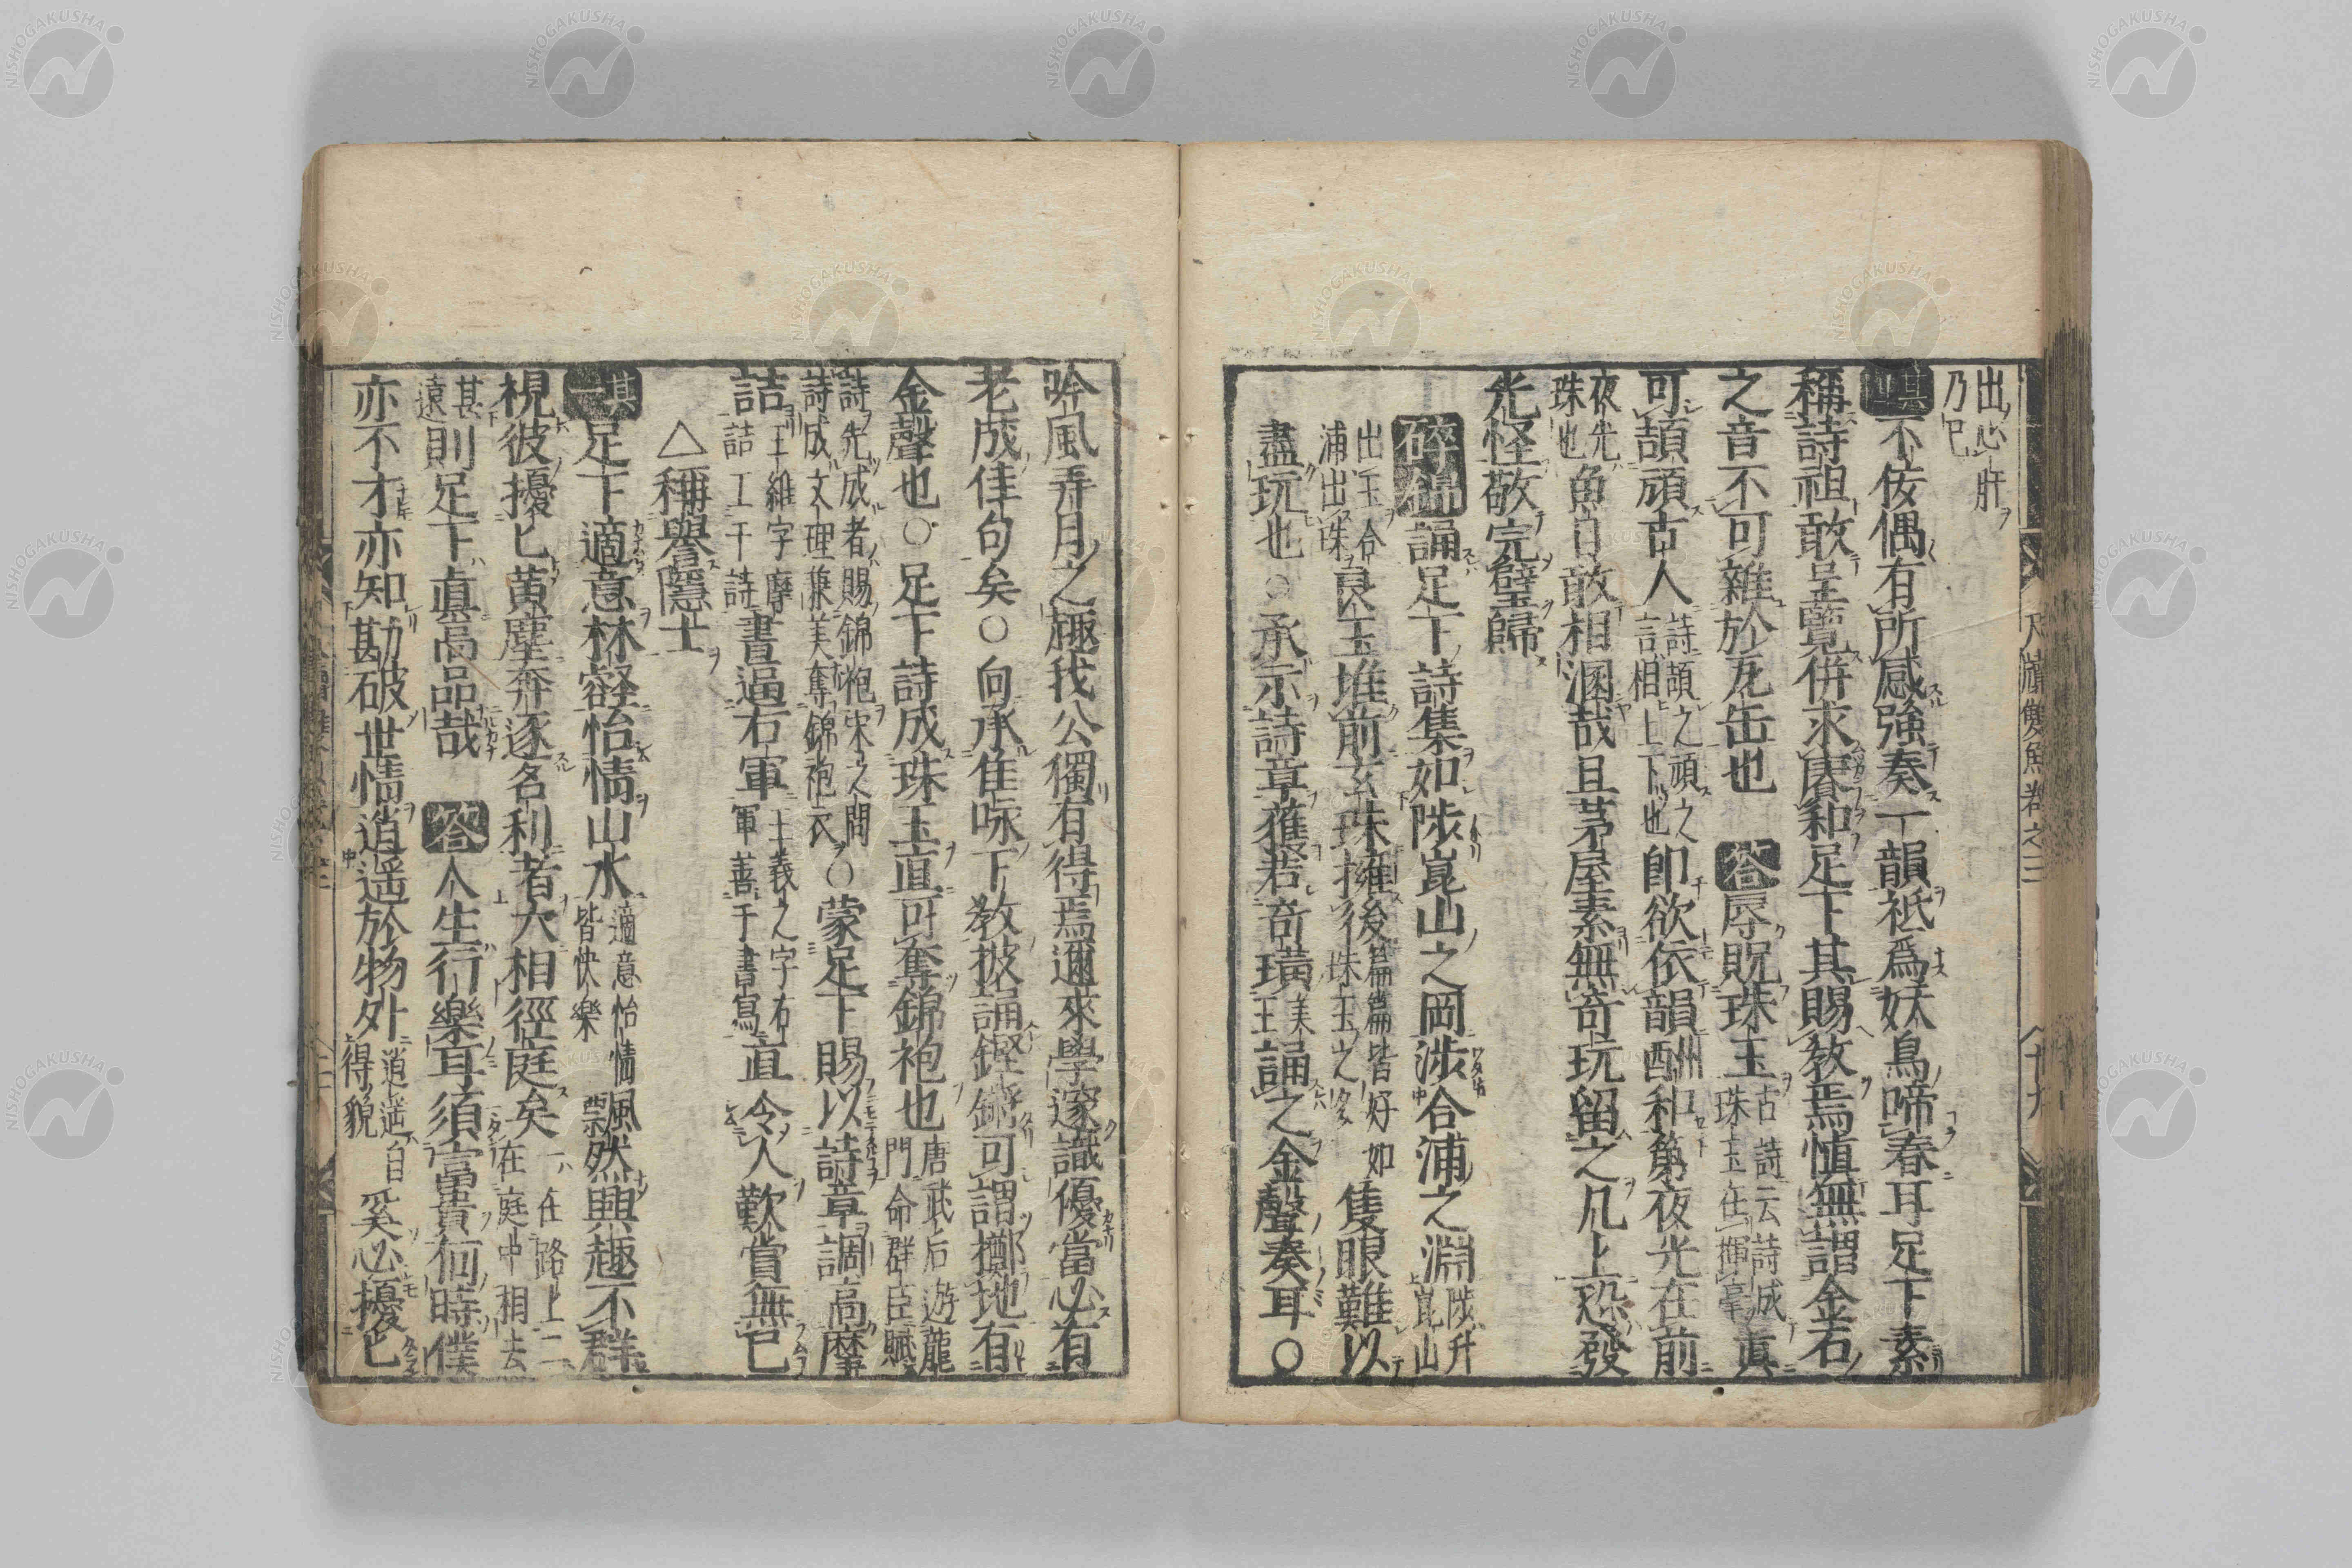 出心肝
乃已
其四 不佞偶有所感強奏一韻祗爲妖鳥啼春耳足下素
稱詩祖敢呈覽併求賡和足下其賜敎焉愼無謂金石
之音不可雜於瓦缶也 答 辱貺珠玉 古詩云詩成珠玉在揮毫 眞
可頡頏古人 詩頡之頏之言相上下也 卽欲依韻酬和第夜光在前
夜光珠也 魚目敢相溷哉且茅屋素無奇玩留之凡上恐發
光怪敬完璧歸
碎錦 誦足下詩集如陟崑山之岡涉合浦之淵 陟升崑山
出玉合浦出珠 良玉堆前玄珠擁後 篇篇皆好如珠玉之多 隻眼難以
盡玩也○承示詩章獲若奇璜 美玉 誦之金聲奏耳○
吟風弄月之趣我公獨有得焉邇來學邃識優當必有
老成佳句矣○向承隹咏下敎披誦鏗鏘可謂擲地有
金聲也○足下詩成珠玉直可奪錦袍也 唐武后遊龍門命群臣賦
詩先成者賜錦袍宋之問詩成文理兼美奪錦袍衣 ○蒙足下賜以詩章調高摩
詰 王維字摩詰工于詩 書逼右軍 王羲之字右軍善于書寫 直令人歎賞無已
△稱譽隱士
其一 足下適意林壑怡情山水 適意怡情皆快樂 飄然興趣不群
視彼擾匕黄塵奔逐名利者大相徑庭矣 一在路上一在庭中相去
甚遠 則足下眞高品哉 答 人生行樂耳須富貴何時僕
亦不才亦知勘破世情逍遥於物外 逍遥自得貌 奚必擾匕
尺牘雙魚卷之三
十九